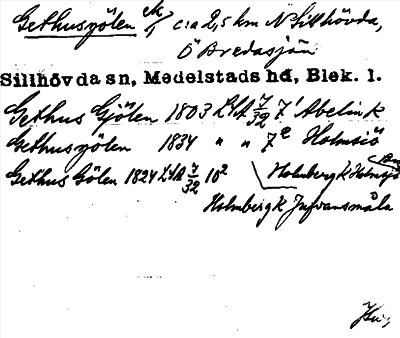 Gethusgölen ek 1/1 c:a 2,5 km N Sillhövda,
Ö Bredasjön
Sillhövda sn, Medelstads hd, Blek. l.
Gethus Gjölen 1803 LSA 7/32 7' Abelin K
Gethusgölen 1834 " " 7² Holmsjö
Gethus Gölen 1824 LSA 7/32 10² Holmberg K Holmsjö
Holmberg K Jufvansmåla